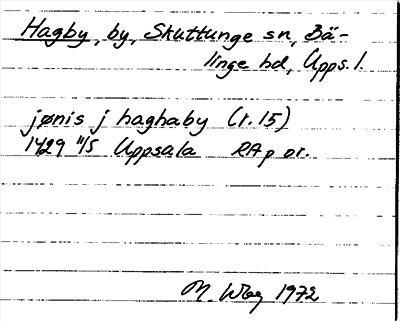 Hagby, by, Skuttunge sn, Bä-
linge hd, Upps. l.
jønis j haghaby (r. 15)
1429 11/5 Uppsala RAp or.
M. 1972